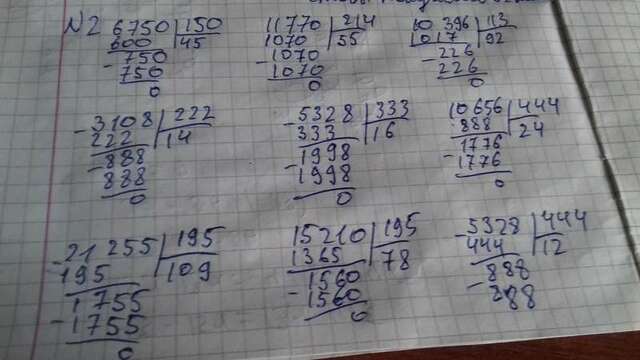 N2 6750|150 11770|214 10 396|113
600|45 1070|55 1017|92
-750 -1070 -226
750 1070 226
0 0 0
-3108|222 -5328|333 10656|444
222|14 333|16 888|24
-888 -1998 -1776
888 1998 1776
0 0 0
-21 255|195 15210|195 -5328|444
195|109 1365|78 444|12
-1755 -1560 -888
1755 1560 888
0 0